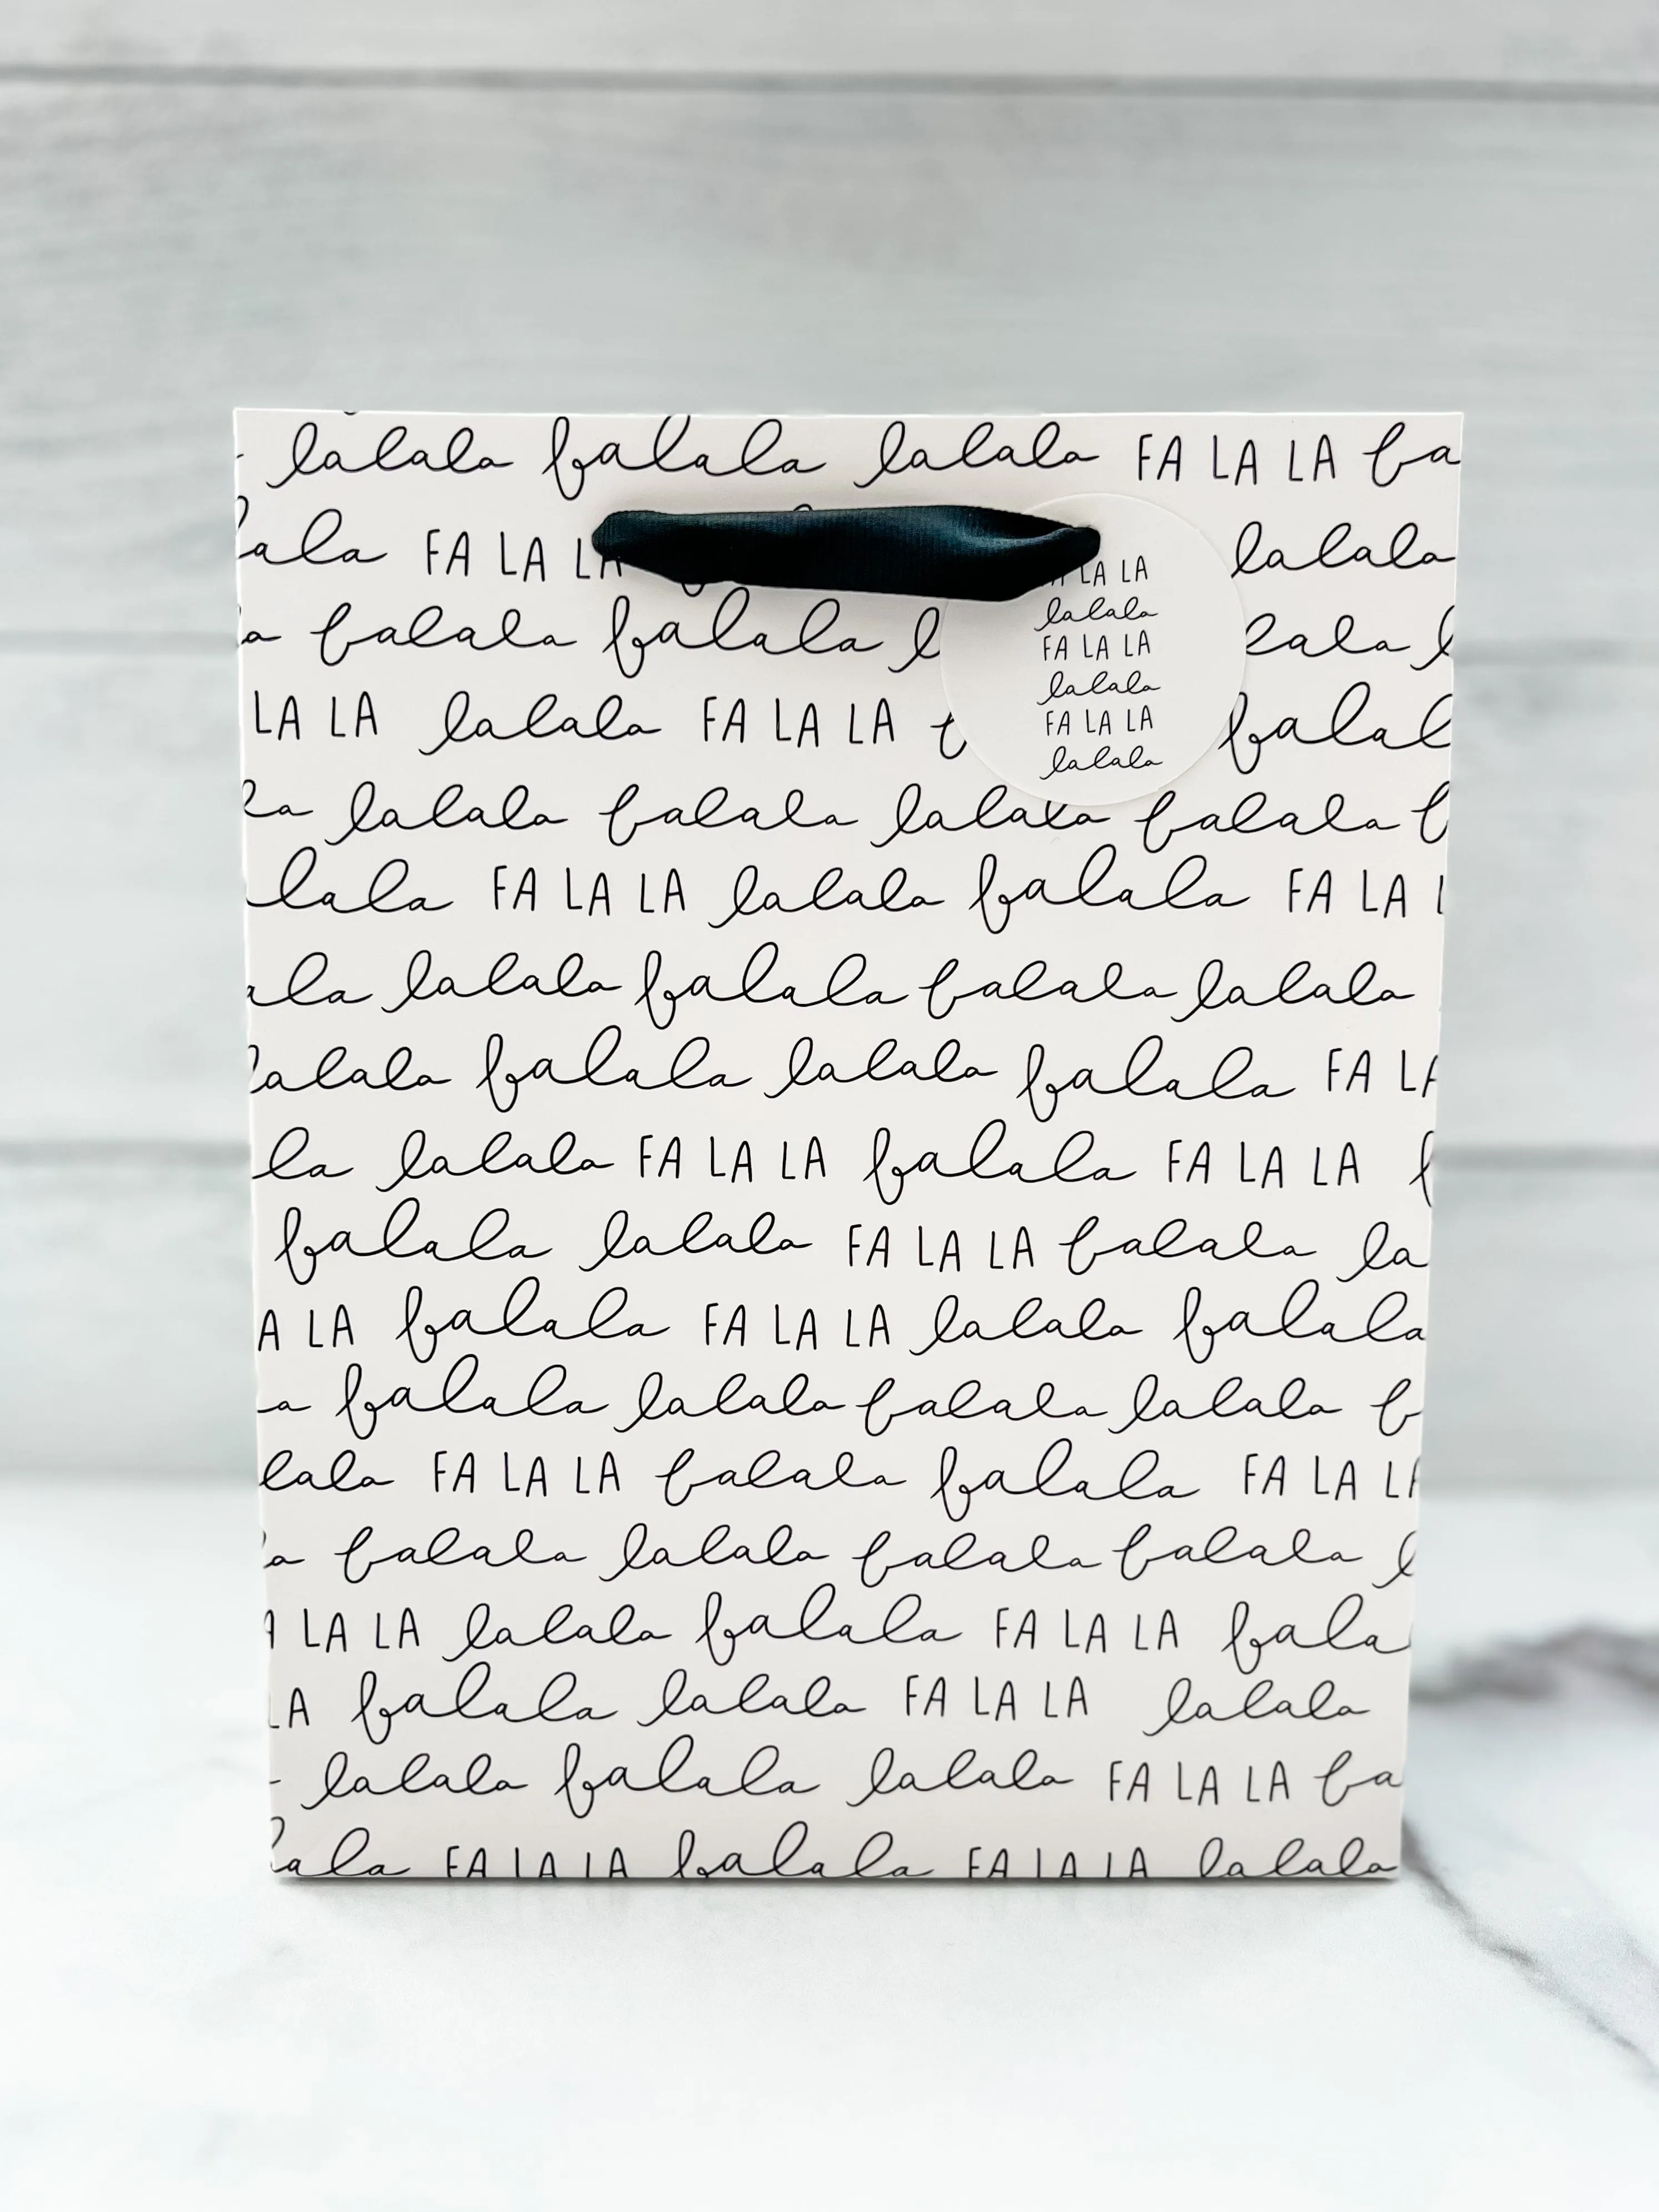 lalala falala lalala FA LA LA fa
ala FA LA LA lalala
a falala falala l lala l
LA LA lalala FA LA LA falal
la lalala falala lalala falala f
lala FA LA LA lalala falala FA LA L
ala lalala falala falala lalala
lalala falala lalala falala FA LA
la lalala FA LA LA falala FA LA LA f
falala lalala FA LA LA falala la
A LA falala FA LA LA lalala falala
a falala lalala falala lalala f
lala FA LA LA falala falala FA LA LA
a falala lalala falala falala l
A LA LA lalala falala FA LA LA fala
LA falala lalala FA LA LA lalala
lalala falala lalala FA LA LA fa
ala FA LA LA falala FA LA LA lalala
LA LA
lalala
FA LA LA
lalala
FA LA LA
lalala